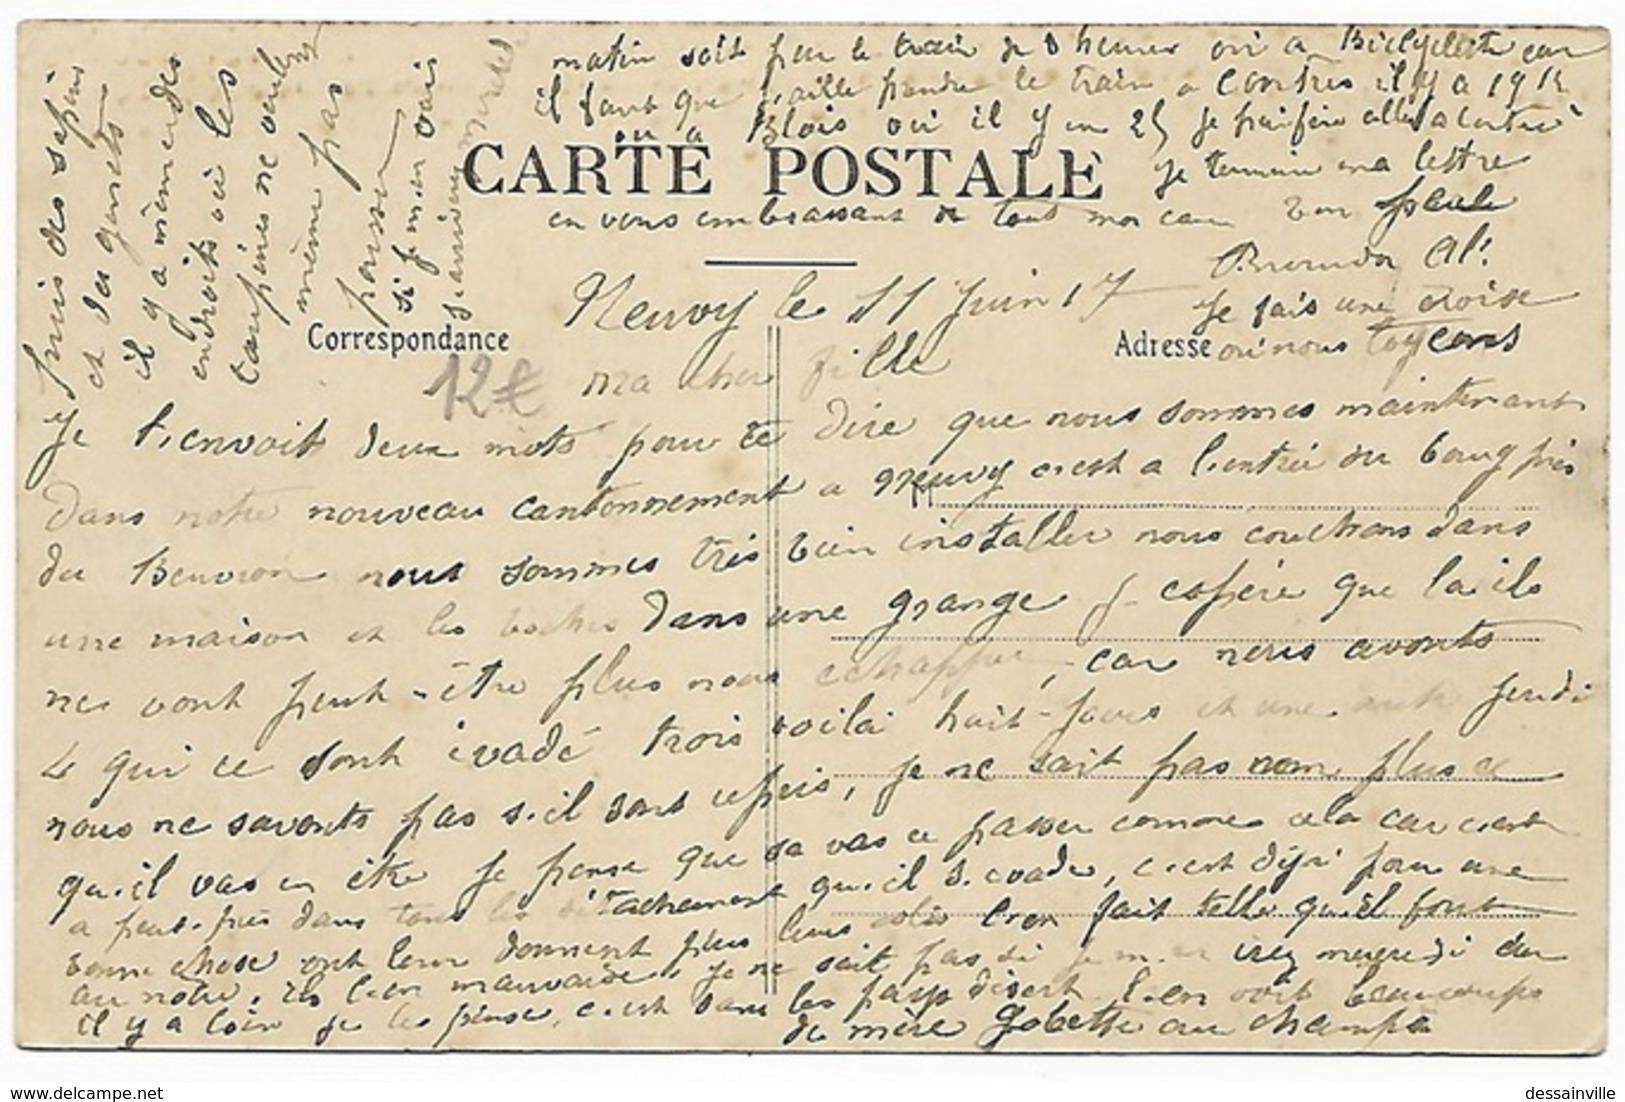 Neuvy le 11 Juin 17
ma cher fille
Je t'envoit deux mots pour te dire que nous sommes maintenant
dans notre nouveau cantonnement a Neuvy c'est a l'entrée du bourg près
du Beuvron nous sommes très bien installer nous couchons dans
une maison et les boches dans une grange j'espère que la ils
ne vont peut-être plus nous echapper, car nous avonts
4 qui ce sont évadé trois voilà huit-jours et une autre jeudi
nous ne savonts pas s'il sont repris, je ne sait pas non plus ce
qu'il vas en être je pense que sa vas ce passer comme cela car c'est
a peut-près dans tous les détachement qu'il s'evade, c'est déjà pour une
bonne chose ont leur donnent plus leurs colis l'on fait telle qu'il font
au notre, ils l'en mauvaise, je ne sait pas si je m'en irez mercredi car
il y a loin je les pense, c'est dans les pays désert l'en voit beaucoups
de mère Gobette au champs
puis des sapins
et des genets
il y a même des
endroits où les
lapines ne veulent
même pas
passer
si je m'en vais
j'arriverez mercredi
matin soit par le train de 8 heures ou a Bicyclette car
il faut que j'aille prendre le train a Contres il y a 19 k
ou a Blois où il y en 25 je préfère aller a Contres
je termine ma lettre
en vous embrassant de tout mon cœur ton
Al.
je fais une croix
où nous
CARTE POSTALE
Correspondance
Adresse
12€
dessainville.free.fr
dessainville